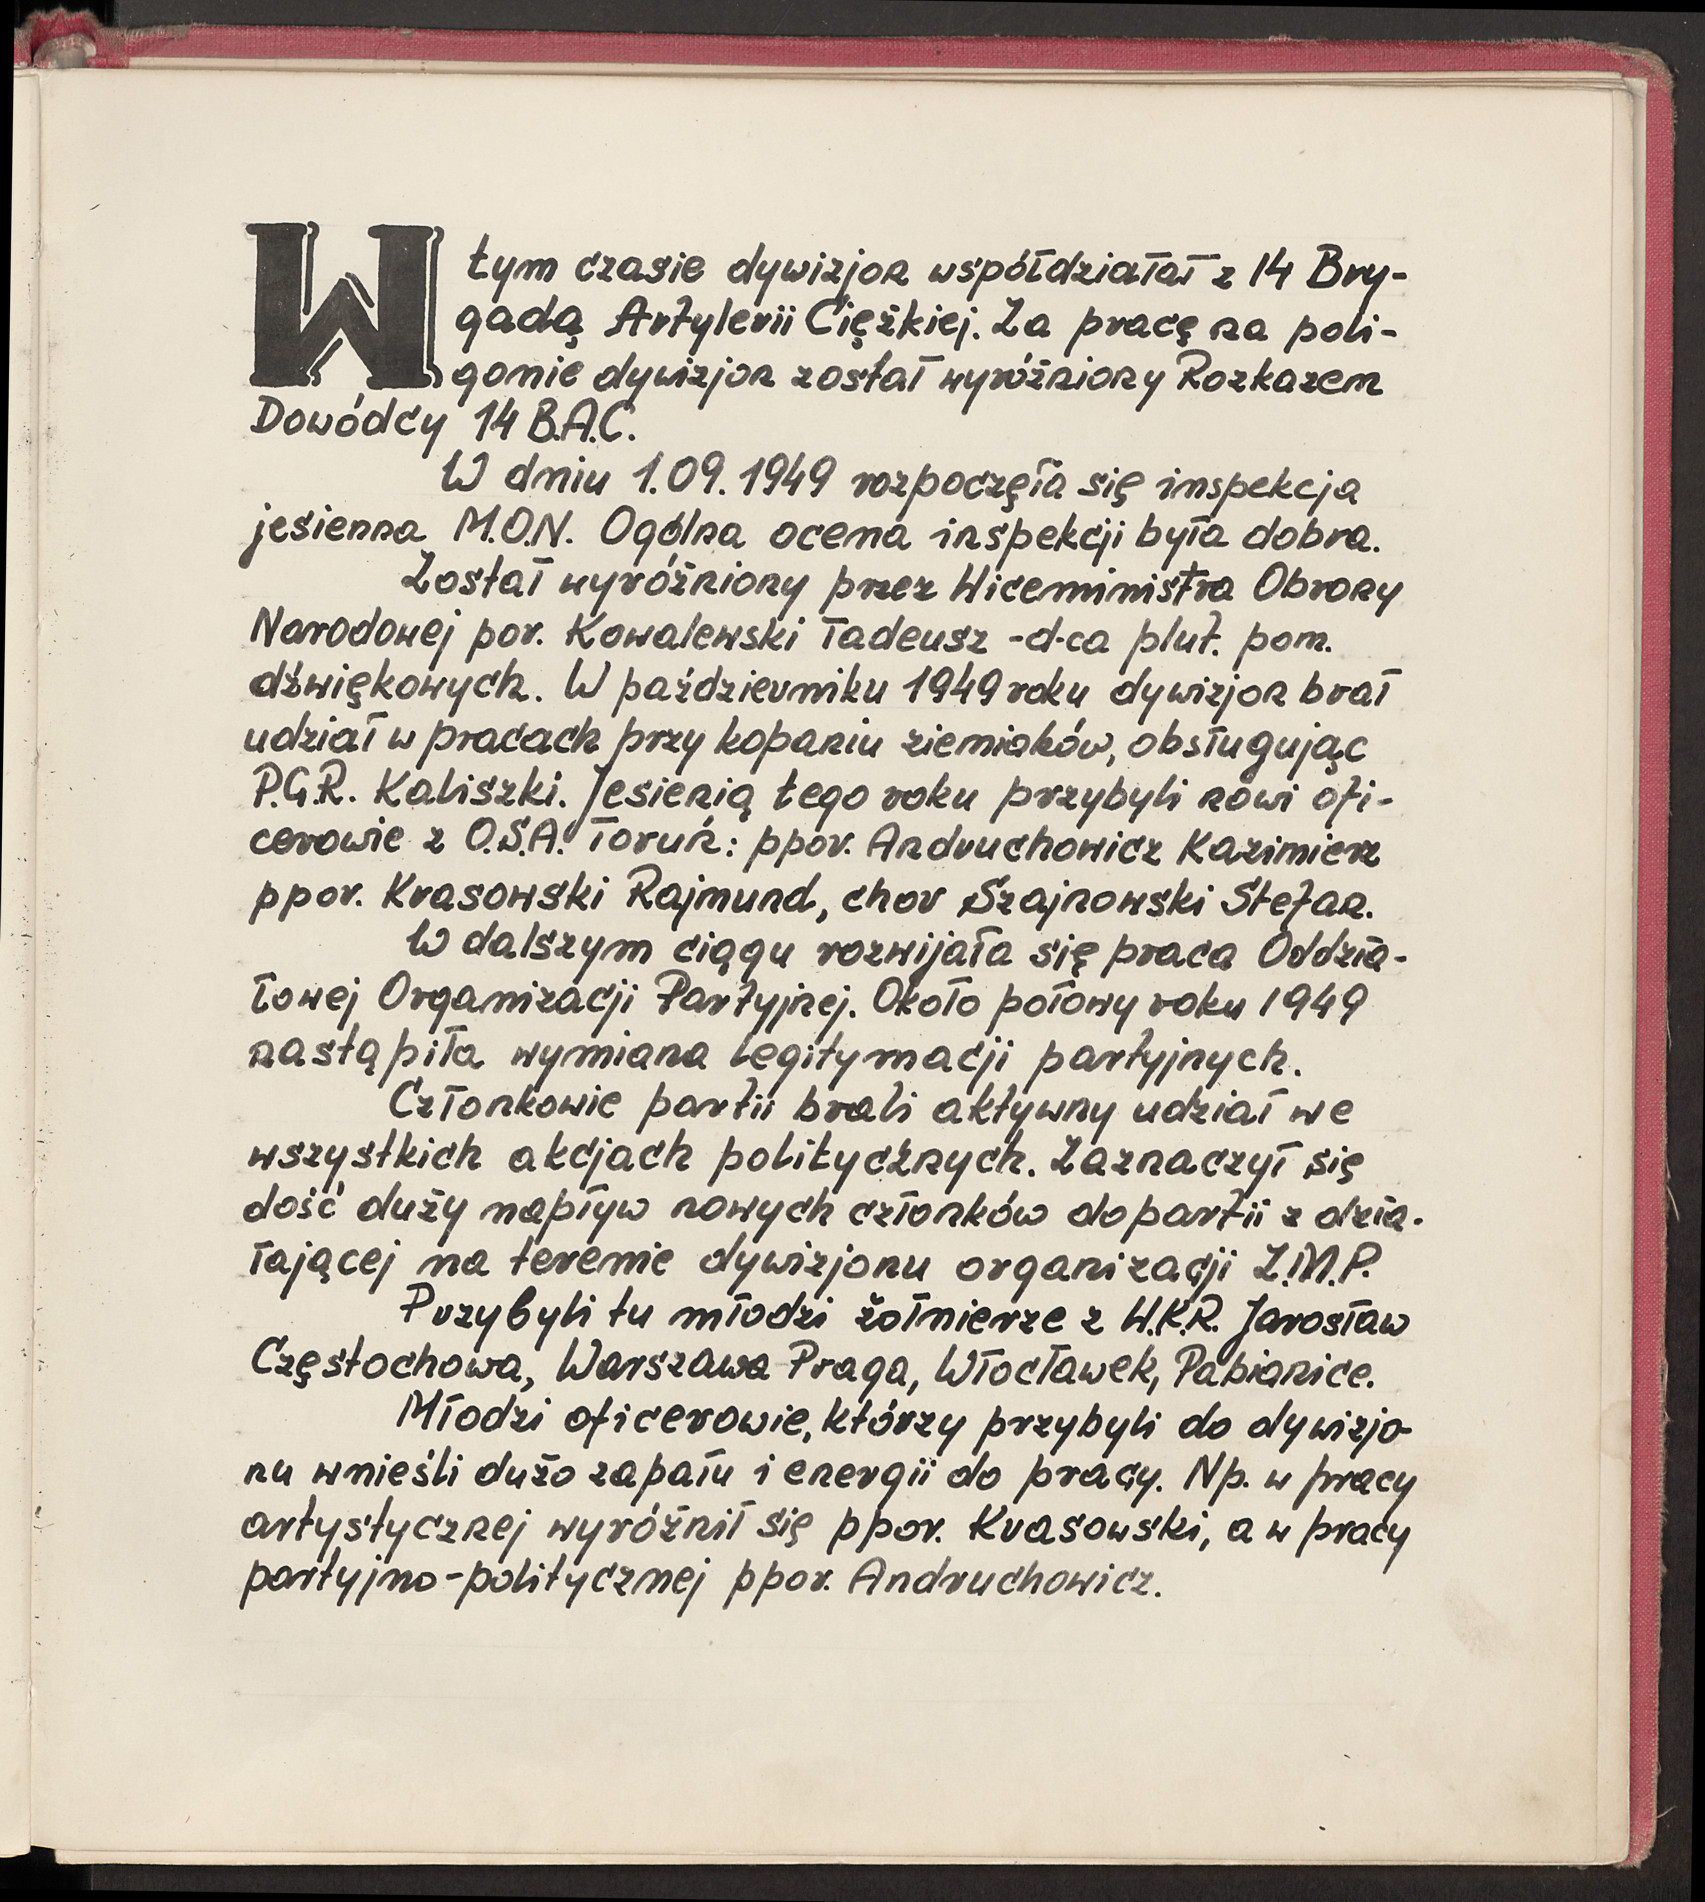 W tym czasie dywizjon współdziałał z 14 Bry-
gadą Artylerii Ciężkiej. Za pracę na poli-
gonie dywizjon został wyróżniony Rozkazem
Dowódcy 14 B.A.C.
W dniu 1.09.1949 rozpoczęła się inspekcja
jesienna M.O.N. Ogólna ocena inspekcji była dobra.
Został wyróżniony przez Wiceministra Obrony
Narodowej por. Kowalewski Tadeusz - d-ca plut. pom.
dźwiękowych. W październiku 1949 roku dywizjon brał
udział w pracach przy kopaniu ziemiaków, obsługując
P.G.R. Kaliszki. Jesienią tego roku przybyli nowi ofi-
cerowie z O.S.A. Toruń: ppor. Andruchowicz Kazimierz
ppor. Krasowski Rajmund, chor Szajnowski Stefan.
W dalszym ciągu rozwijała się praca Oddzia-
łowej Organizacji Partyjnej. Około połowy roku 1949
nastąpiła wymiana legitymacji partyjnych.
Członkowie partii brali aktywny udział we
wszystkich akcjach politycznych. Zaznaczył się
dość duży napływ nowych członków do partii z dzia-
łającej na terenie dywizjonu organizacji Z.M.P.
Przybyli tu młodzi żołnierze z W.K.R. Jarosław
Częstochowa, Warszawa Praga, Włocławek, Pabianice.
Młodzi oficerowie, którzy przybyli do dywizjo-
nu wnieśli dużo zapału i energii do pracy. Np. w pracy
artystycznej wyróżnił się ppor. Krasowski, a w pracy
partyjno-politycznej ppor. Andruchowicz.